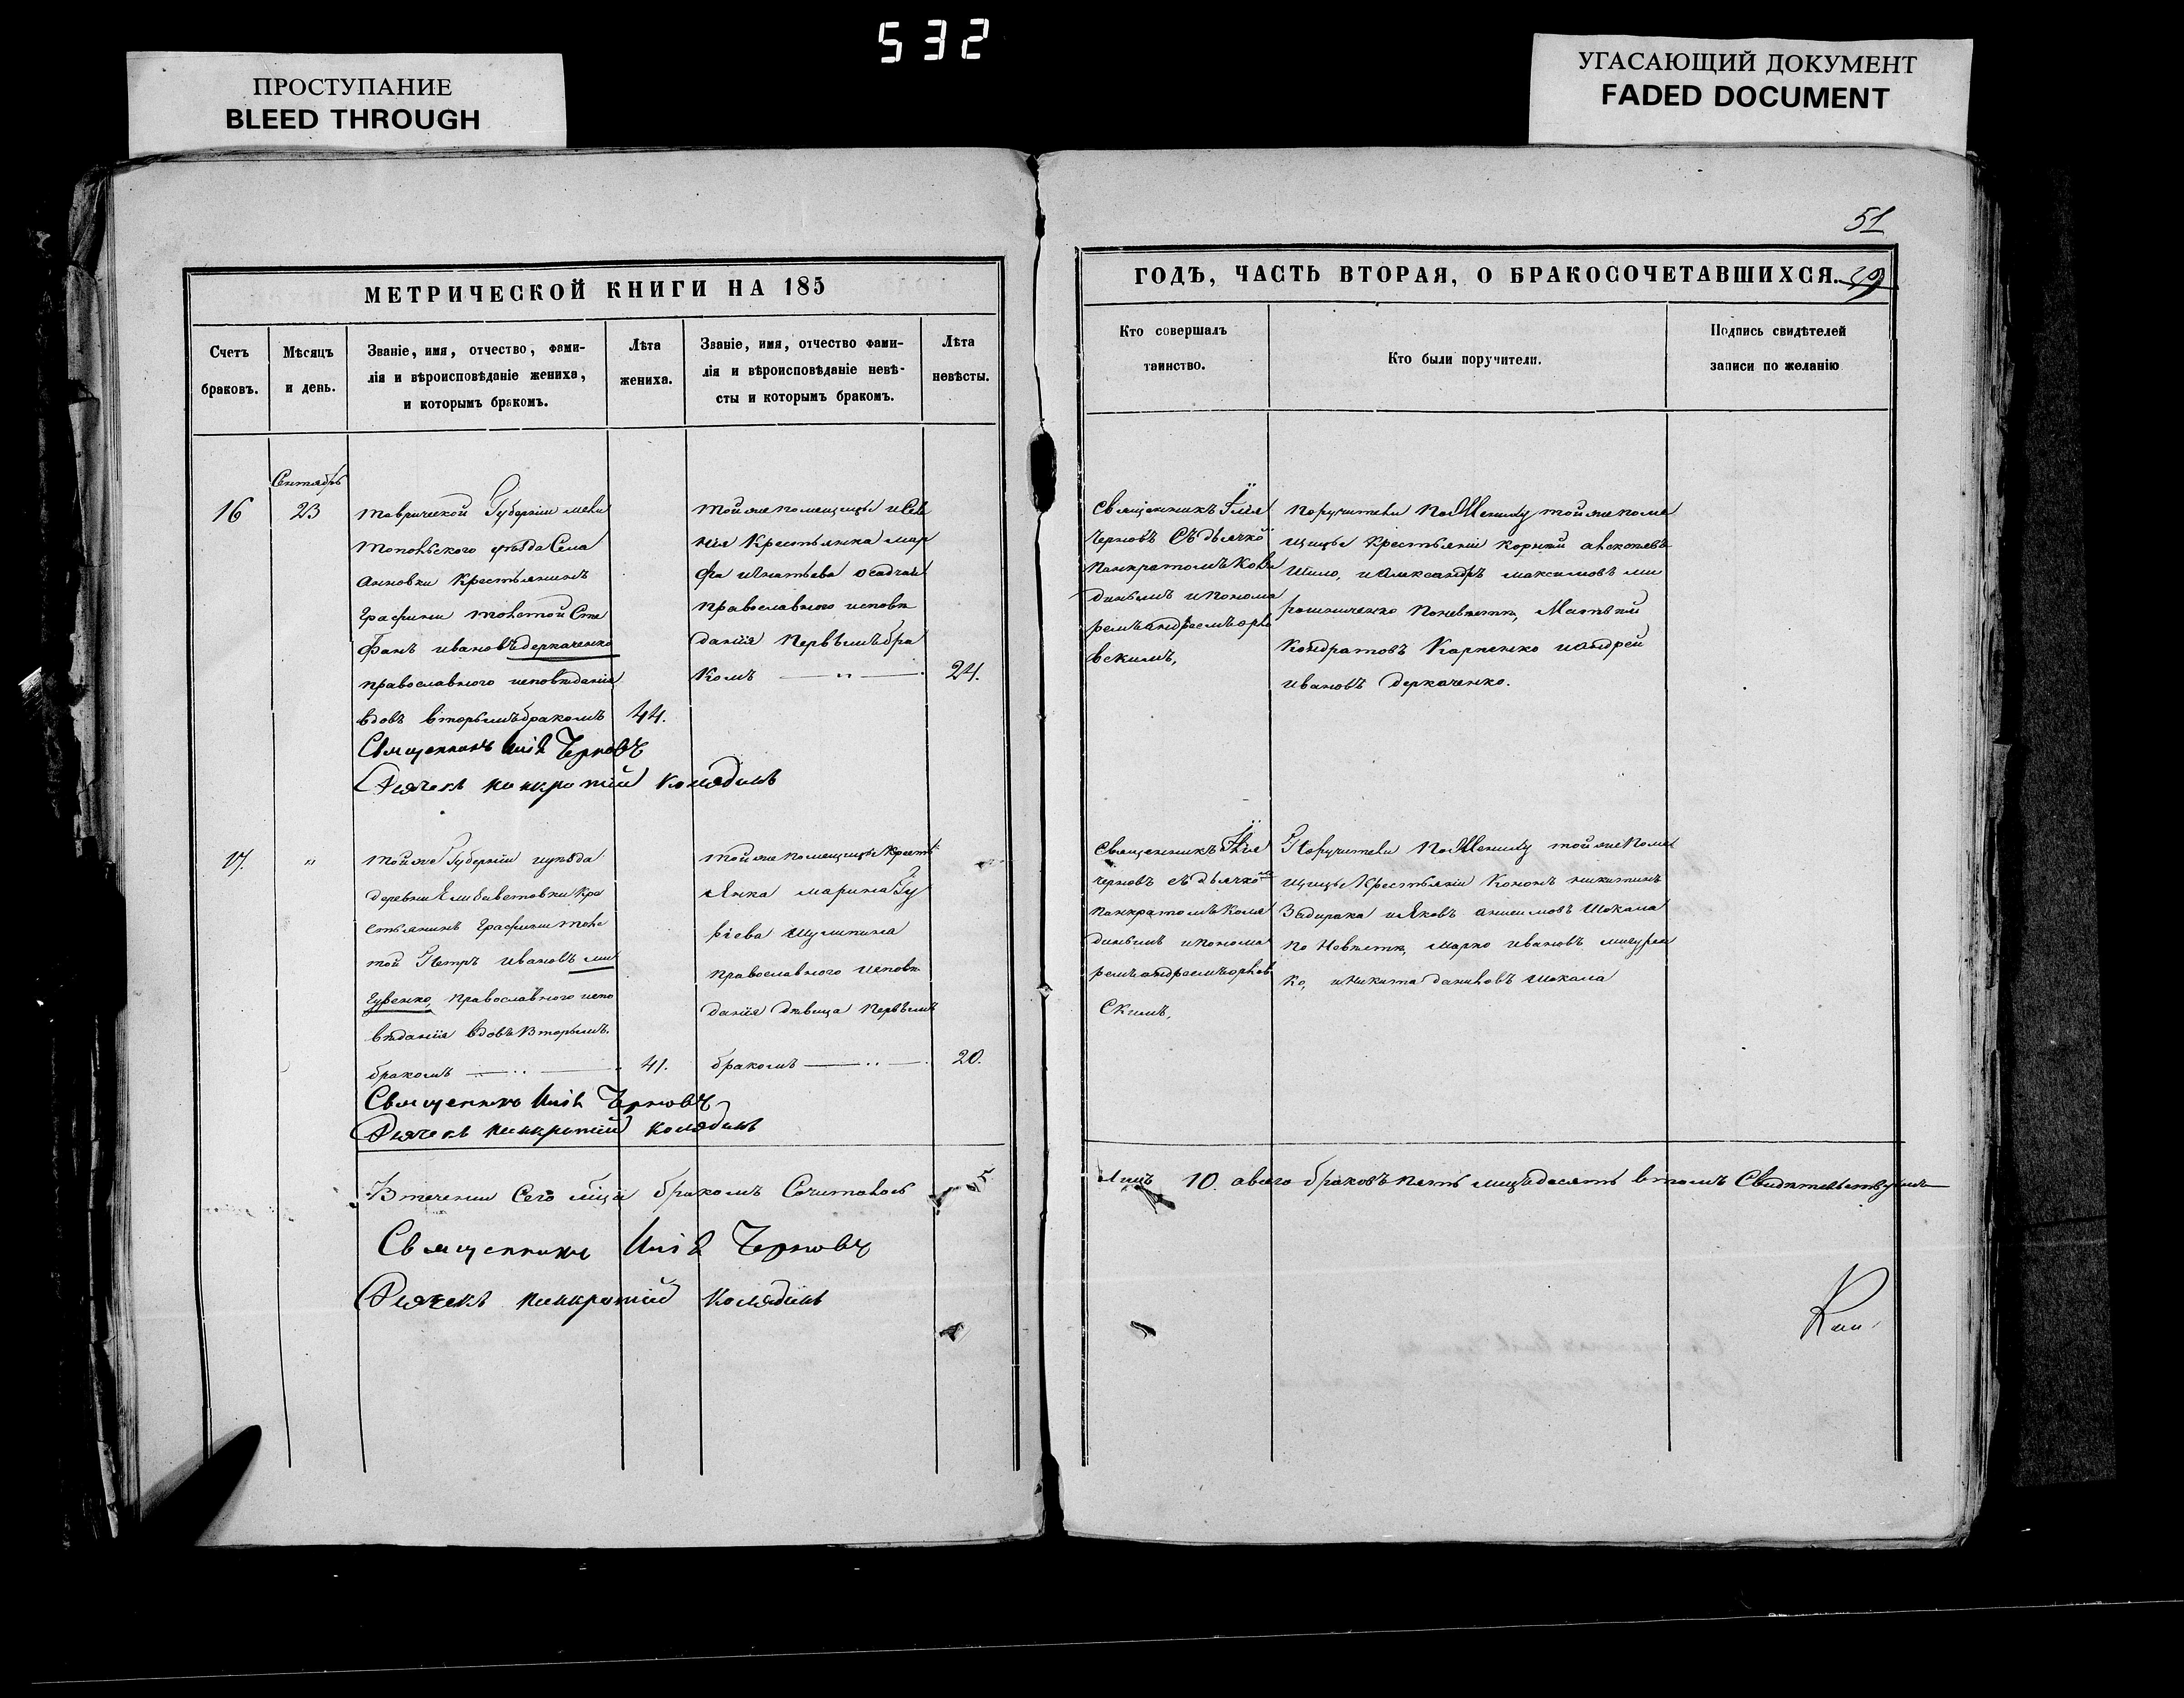 532
ПРОСТУПАНИЕ
BLEED THROUGH
УГАСАЮЩИЙ ДОКУМЕНТ
FADED DOCUMENT
МЕТРИЧЕСКОЙ КНИГИ НА 185
Счетъ
браковъ.
Мѣсяцъ
и день.
Званіе, имя, отчество, фами-
лія и вѣроисповѣданіе жениха,
и которымъ бракомъ.
Лѣта
жениха.
Званіе, имя, отчество фами-
лія и вѣроисповѣданіе невѣ-
сты и которымъ бракомъ.
Лѣта
невѣсты.
16
Сентябрь
23
Таврической Губерніи мели
топольского уѣзда Села
Анновки Крестьянинъ
Графини толстой Сте
фанъ ивановъ деркаченко
православного исповѣданія
вдовъ вторымъ бракомъ
44.
Тойже помещицы и Селе
нія Крестьянка мар
фа игнатьева осадчая
православного исповѣ
данія первымъ бра
комъ
24.
Священникъ Илія Черновъ
Дьячекъ панкратій колядинъ
17.
"
Тойже Губерніи и уѣзда
деревни Елисаветовки Кре
стьянинъ Графини толс
той Петръ ивановъ ми
гуренко, православного испо
вѣданія вдовъ вторымъ
бракомъ
41.
тойже помещицы Кресть
янка марина Гу
рiева
православного исповѣ
данія дѣвица первымъ
бракомъ
20.
Священникъ Илія Черновъ
Дьячекъ панкратій колядинъ
Втечении Сего мѣсца бракомъ Сочиталось
5
Священникъ Илія Черновъ
Дьячекъ панкратій колядинъ
51
29
ГОДЪ, ЧАСТЬ ВТОРАЯ, О БРАКОСОЧЕТАВШИХСЯ.
Кто совершалъ
таинство.
Кто были поручители.
Подпись свидѣтелей
записи по желанію
Священникъ Илія
Черновъ Съ дьячко
панкратомъ Коля
динымъ и понома
ремъ андреемъ орло
вскимъ,
поручители по Жениху тойже поме
щицы крестьяніи корній
Шило, и Александръ максимовъ ми
рошниченко по невѣстѣ, Матвѣй
Кондратовъ Карпенко и андрей
ивановъ деркаченко.
Священникъ Илія
Черновъ съ дьячкомъ
панкратомъ Коля
динымъ и понома
ремъ андреемъ орлов
Скимъ,
Поручители по Жениху тойже Поме
щицы Крестьяніи Кононъ никитинъ
Задирака и Яковъ анисимовъ Шокала
по Невѣстѣ, марко ивановъ мигурен
ко, и никита даниловъ Шокала
Лицъ 10. а всего браковъ пять лицъ десять втомъ Свидѣтельствуемъ